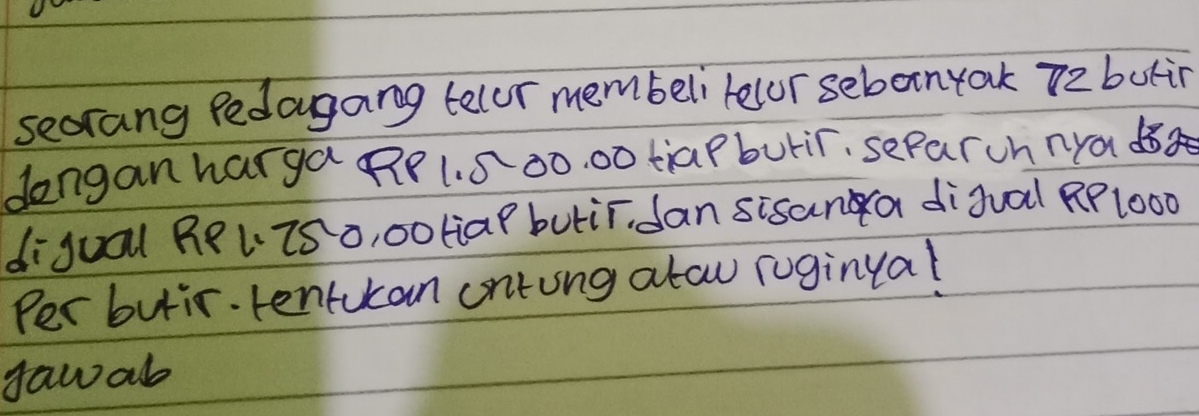 seorang Pedagang telur membeli telur sebanyak 72 butir
dengan harga RP 1.500.00 tiap butir. separuhnya
dijual RP 1.750,00 tiap butir. dan sisanya dijual RP 1000
Per butir. tentukan untung atau ruginya!
Jawab